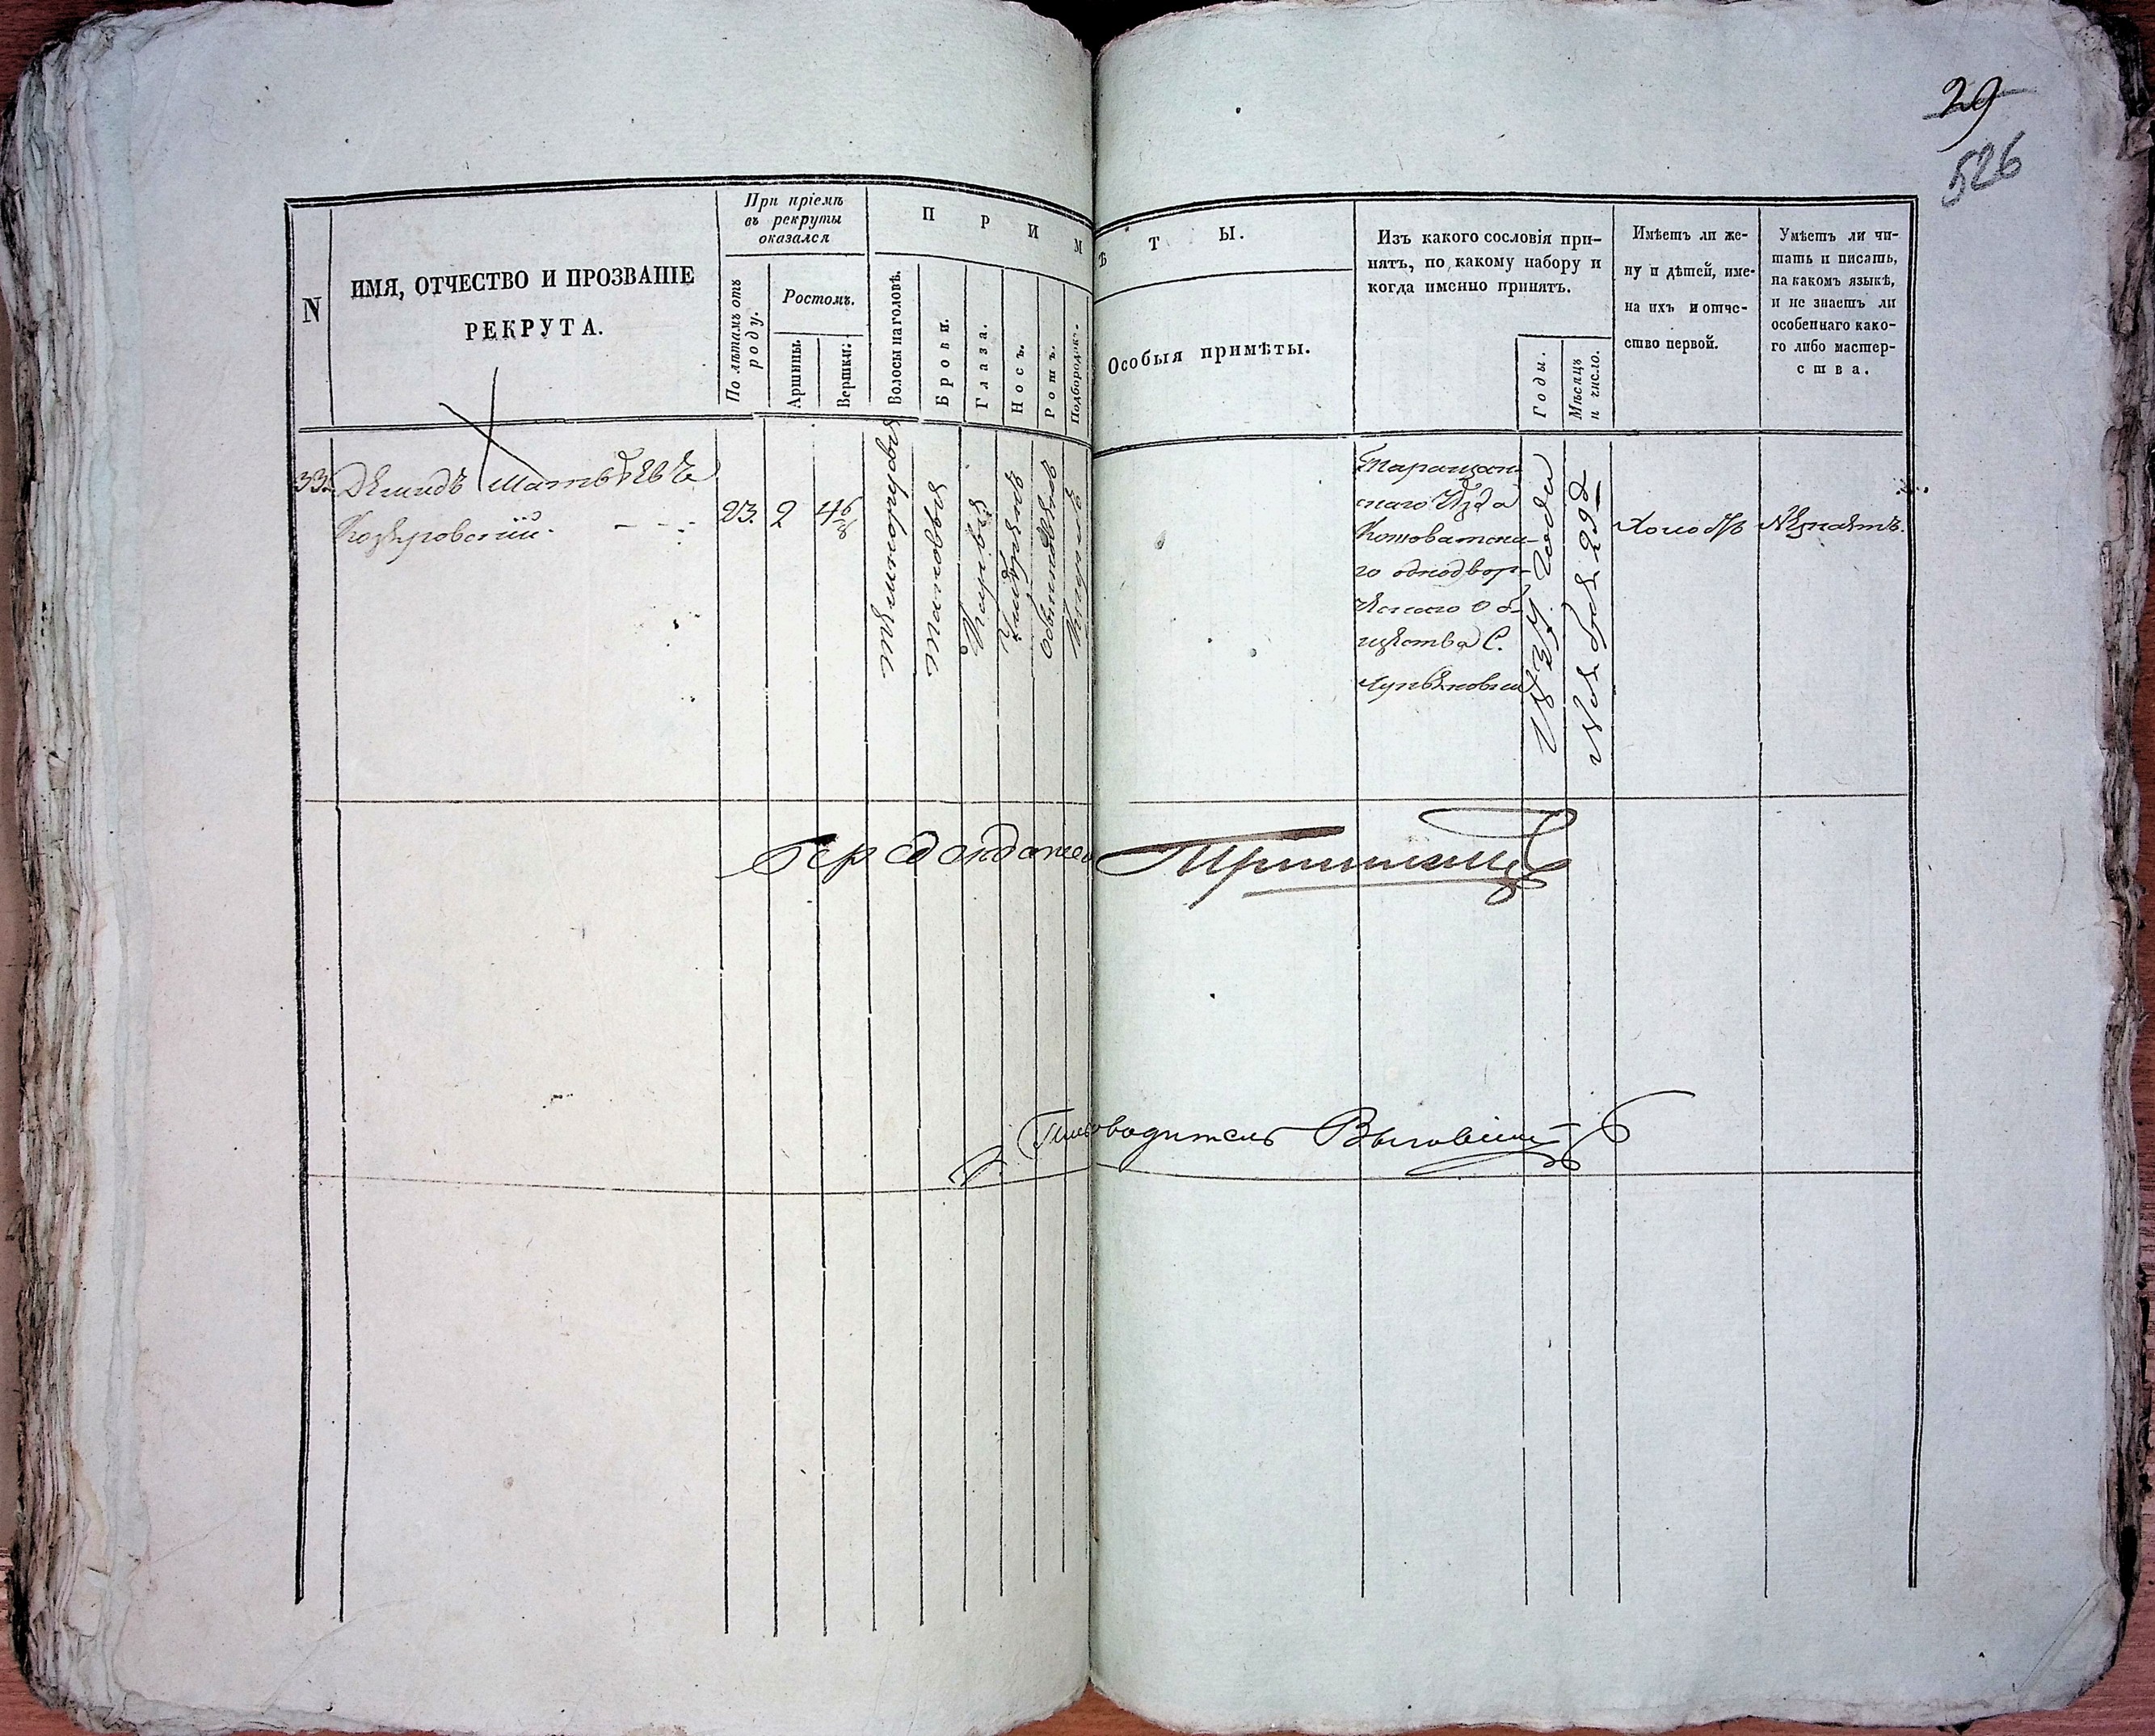 29
526
N
ИМЯ, ОТЧЕСТВО И ПРОЗВАНІЕ
РЕКРУТА.
При пріемѣ
въ рекруты
оказался
По лѣтамъ отъ
роду.
Ростомъ.
Аршины.
Вершки.
ПРИМѢТЫ.
Волосы на головѣ.
Брови.
Глаза.
Носъ.
Ротъ.
Подбородокъ.
Особыя примѣты.
Изъ какого сословія при-
нятъ, по какому набору и
когда именно принятъ.
Годы.
Мѣсяцъ
и число.
Имѣетъ ли же-
ну и дѣтей, име-
на ихъ и отче-
ство первой.
Умѣетъ ли чи-
тать и писать,
на какомъ языкѣ,
и не знаетъ ли
особеннаго како-
го либо мастер-
ства.
33.
Демидъ Матвѣевъ
Козеровскій
23.
2
4 6/8
темнорусыя
таковыя
Каріе
умѣренъ
обыкновенъ
Круглъ
Таращан-
скаго Уѣзда
Кошоватска-
го однодвор-
ческаго Об-
щества С.
1837 Года
Ноября 29 д
Холостъ
Незнаетъ.